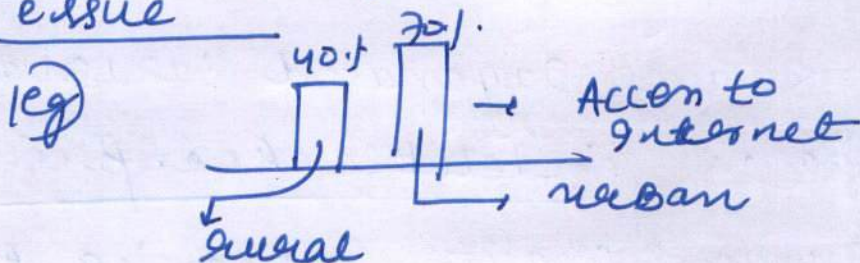 issue
eg
40%
70%.
→ Access to
Internet
→ urban
rural